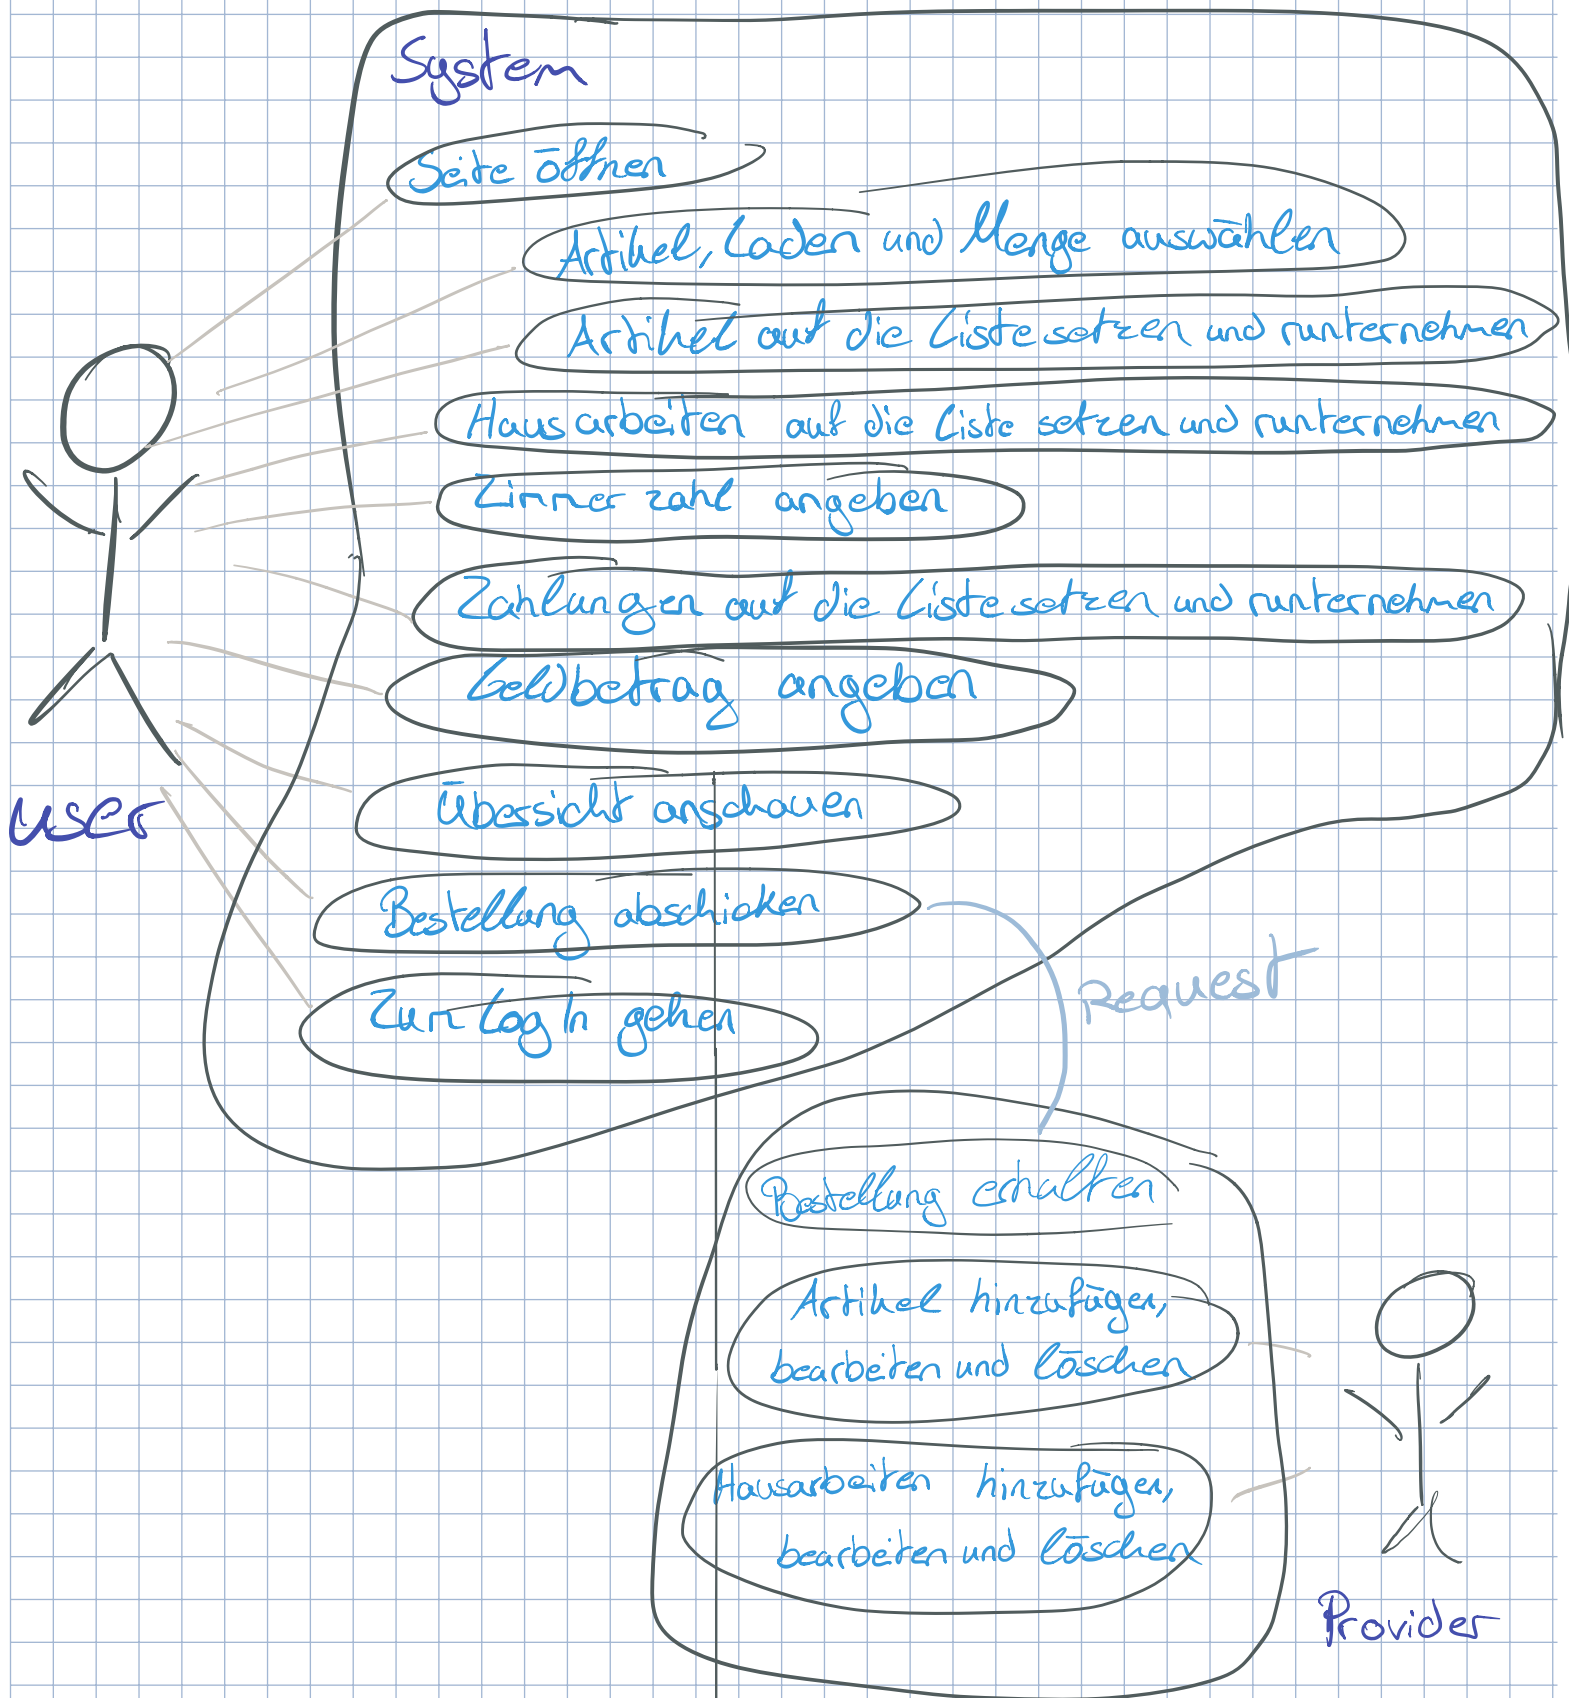 System
Seite öffnen
Artikel, Laden und Menge auswählen
Artikel auf die Liste setzen und runternehmen
Hausarbeiten auf die Liste setzen und runternehmen
Zimmerzahl angeben
Zahlungen auf die Liste setzen und runternehmen
Geldbetrag angeben
Übersicht anschauen
user
Bestellung abschicken
Request
Zum Log In gehen
Bestellung erhalten
Artikel hinzufügen,
bearbeiten und löschen
Hausarbeiten hinzufügen,
bearbeiten und löschen
Provider